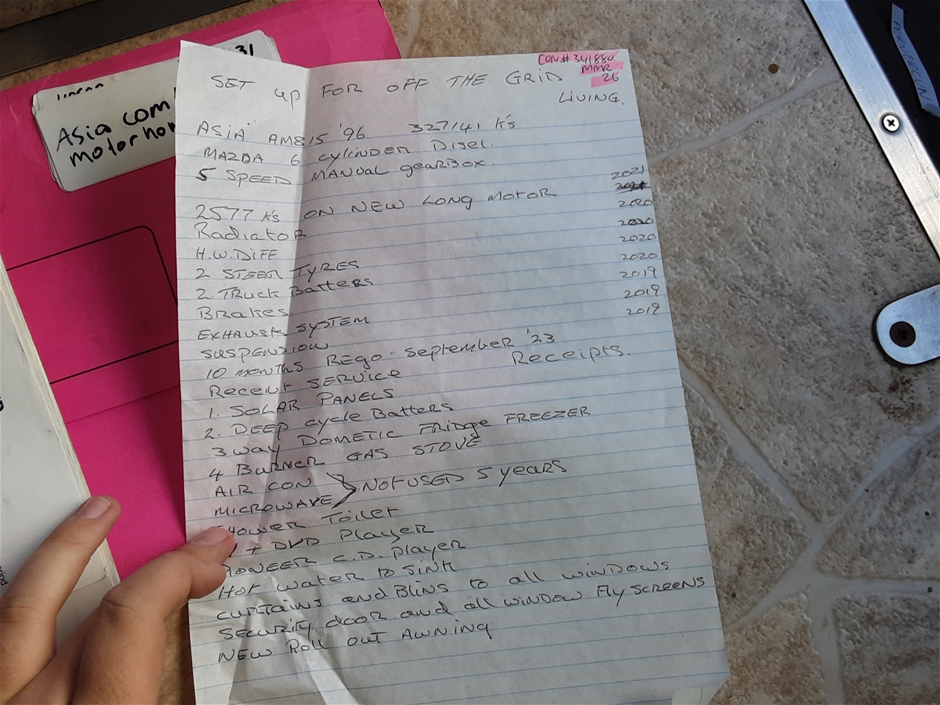 31
Asia Com
motorho
CON# 341880
MMR
26
SET UP FOR OFF THE GRID
LIVING.
ASIA AM815 '96 327141 K's
MAZDA 6 cylinder Disel.
5 SPEED MANUAL gearBox.
2577 K's ON NEW LONG MOTOR 2021
Radiator
2020
H.W. DIFF 2020
2 STEER TYRES 2020
2 TRUCK Batters 2020
Brakes 2019
EXHAUST SYSTEM 2019
SUSPENSION 2019
10 MONTHS Rego - September '23
Recent SERVICE Receipts.
1. SOLAR PANELS
2. DEEP cycle Batters
3 way DOMETIC Fridge FREEZER
4 Burner GAS STOVE
AIR CON
MICROWAVE } NOT USED 5 years
SHOWER Toilet
+ DVD Player
PIONEER C.D. Player
Hot water to Sink
curtains and Blins to all windows
Security door and all window Fly Screens
NEW Roll out Awning